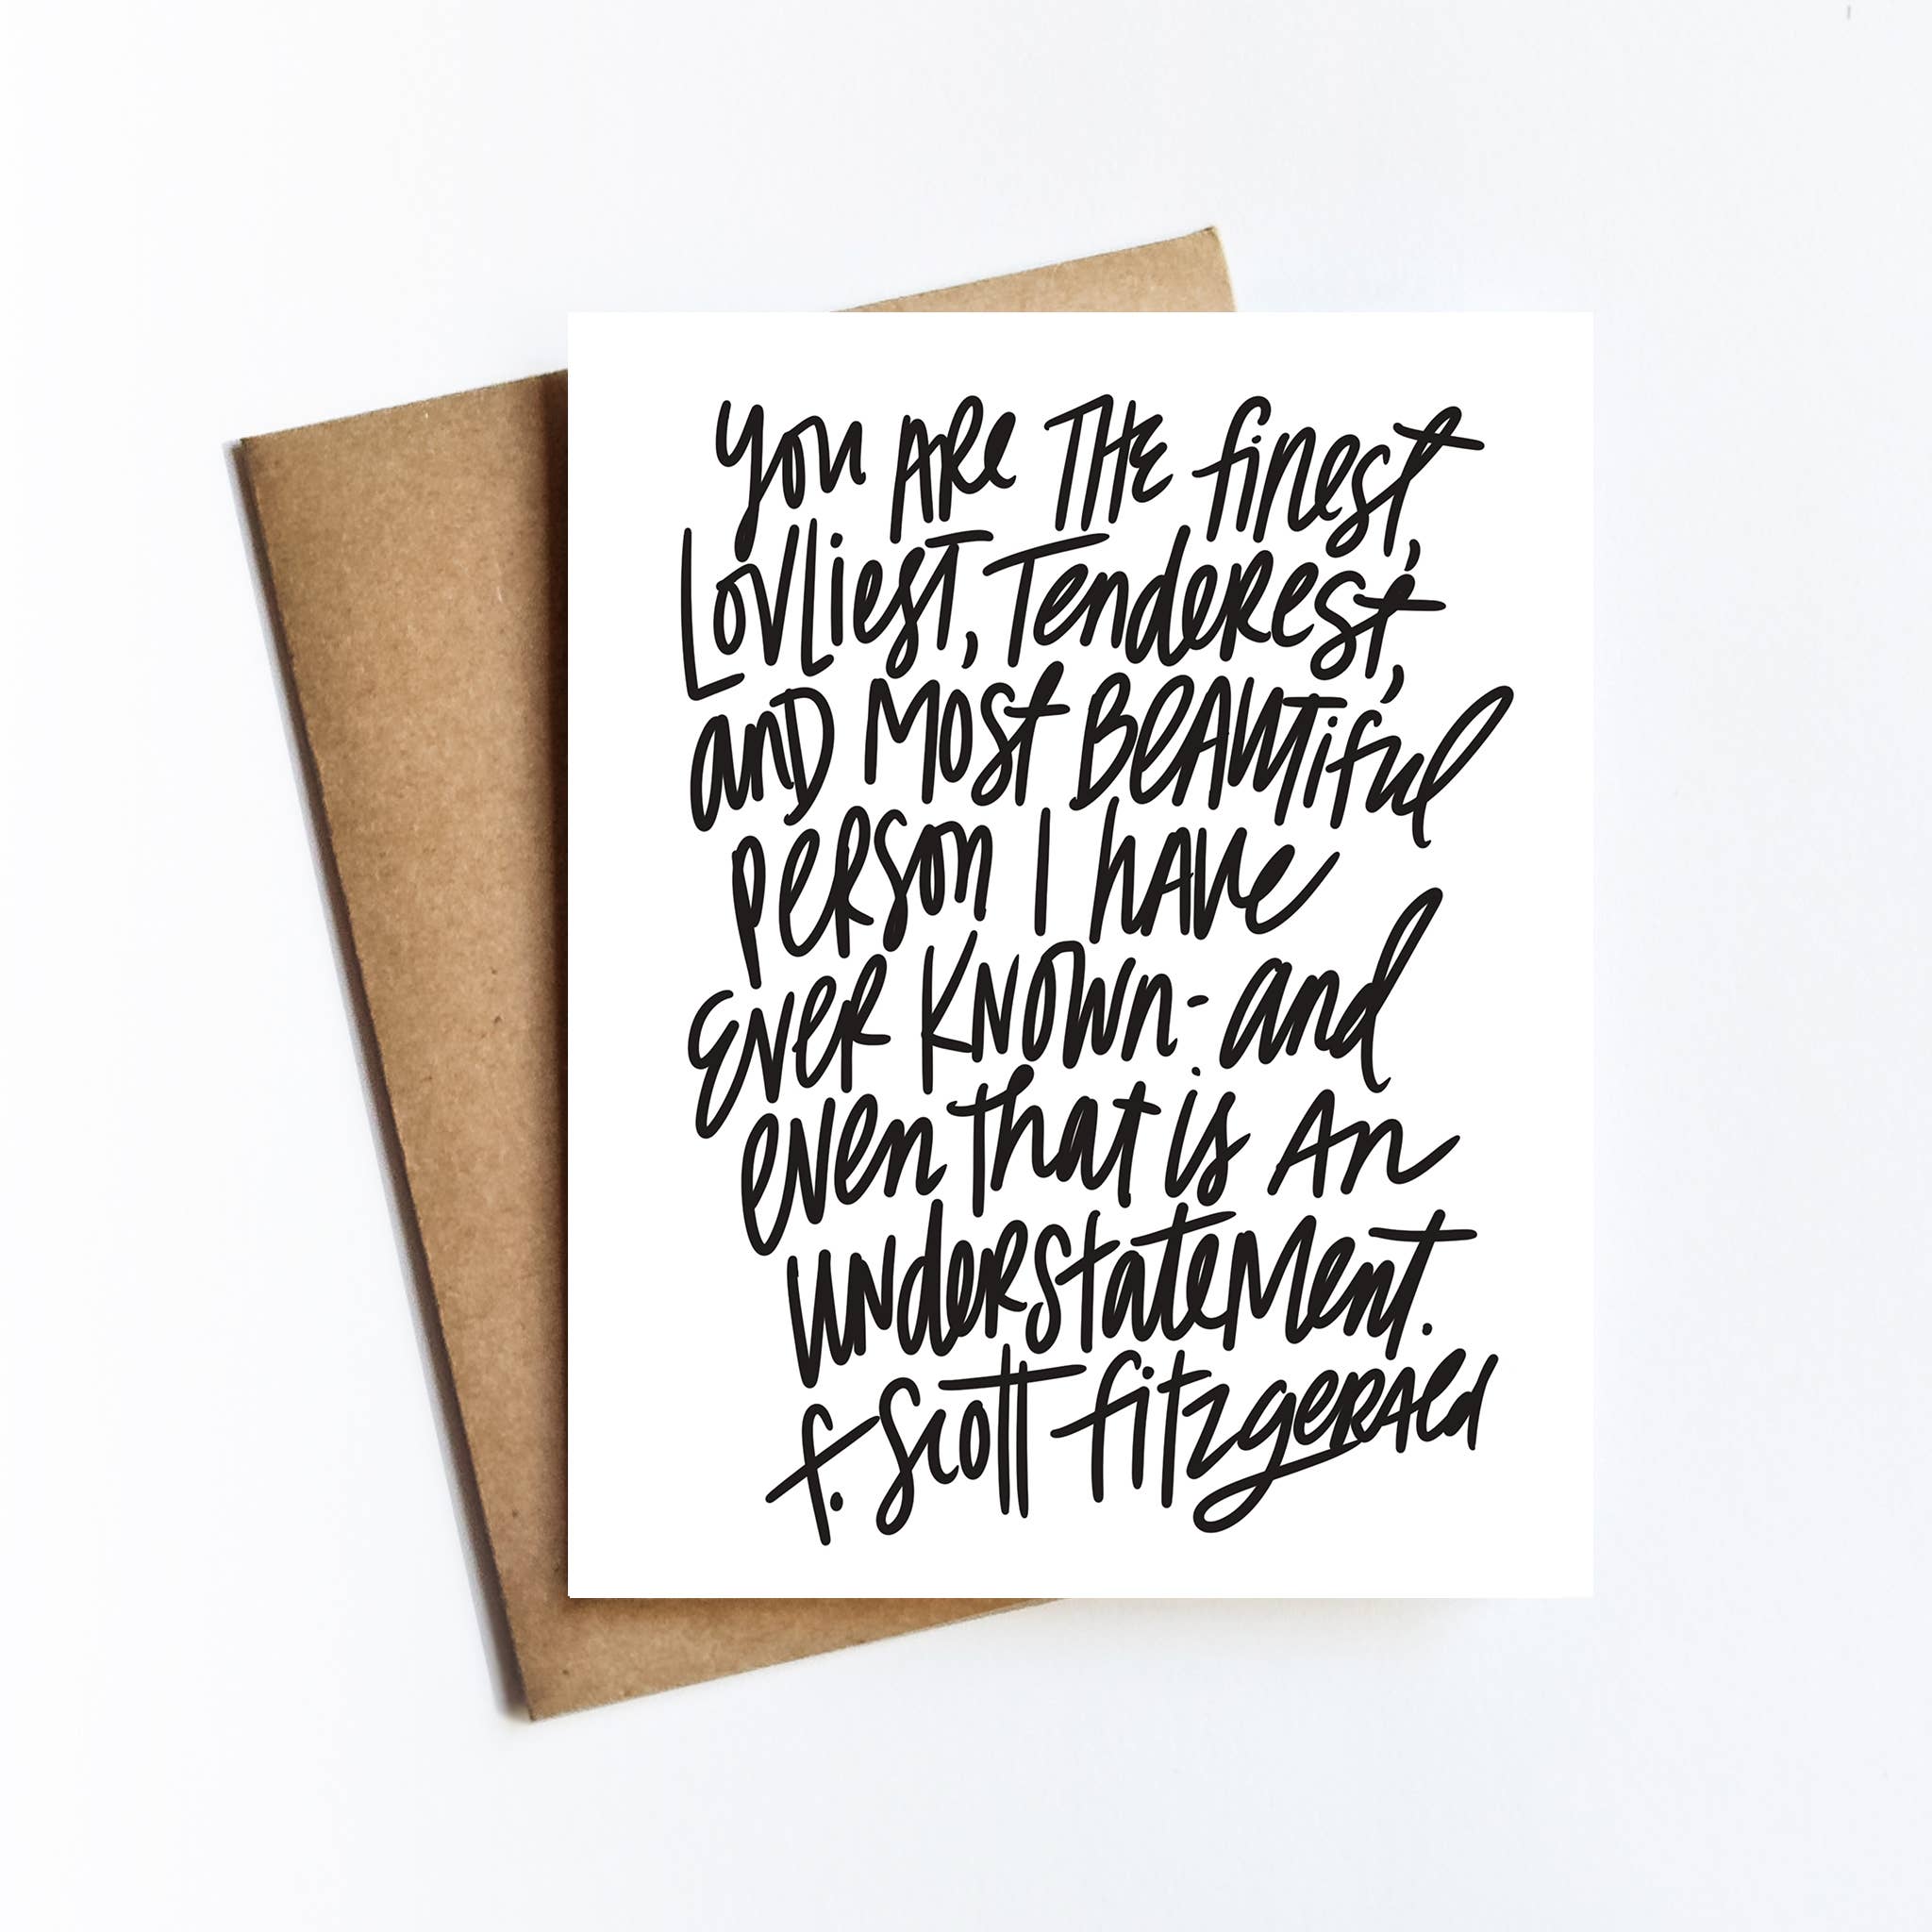 you ARe THe finest,
Lovliest, Tenderest,
and Most BeAutiful
person I hAve
Ever Known - and
even that is An
understatement.
f. Scott fitzgerald